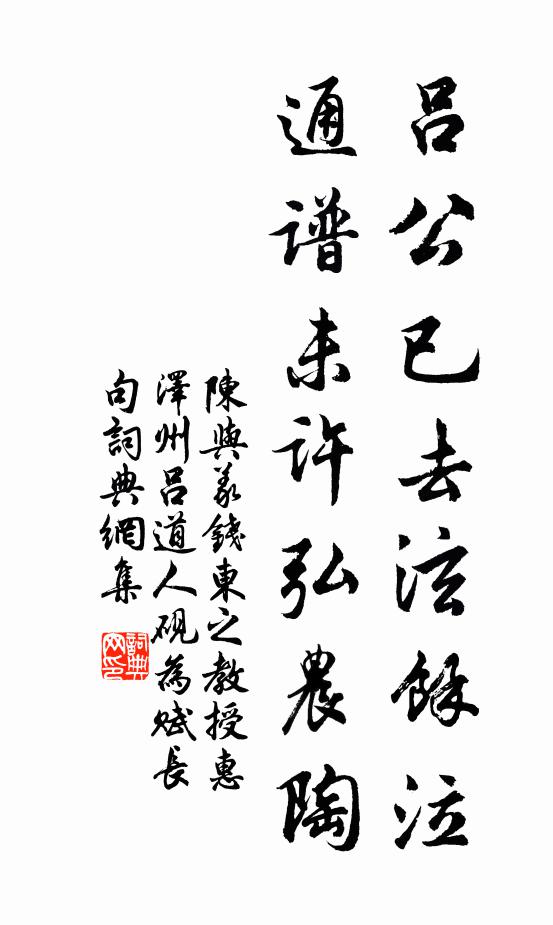 呂公已去泫餘泣
通譜未許弘農陶
陳與義錢東之教授惠
澤州呂道人硯為賦長
句詞典網集
詞典网印